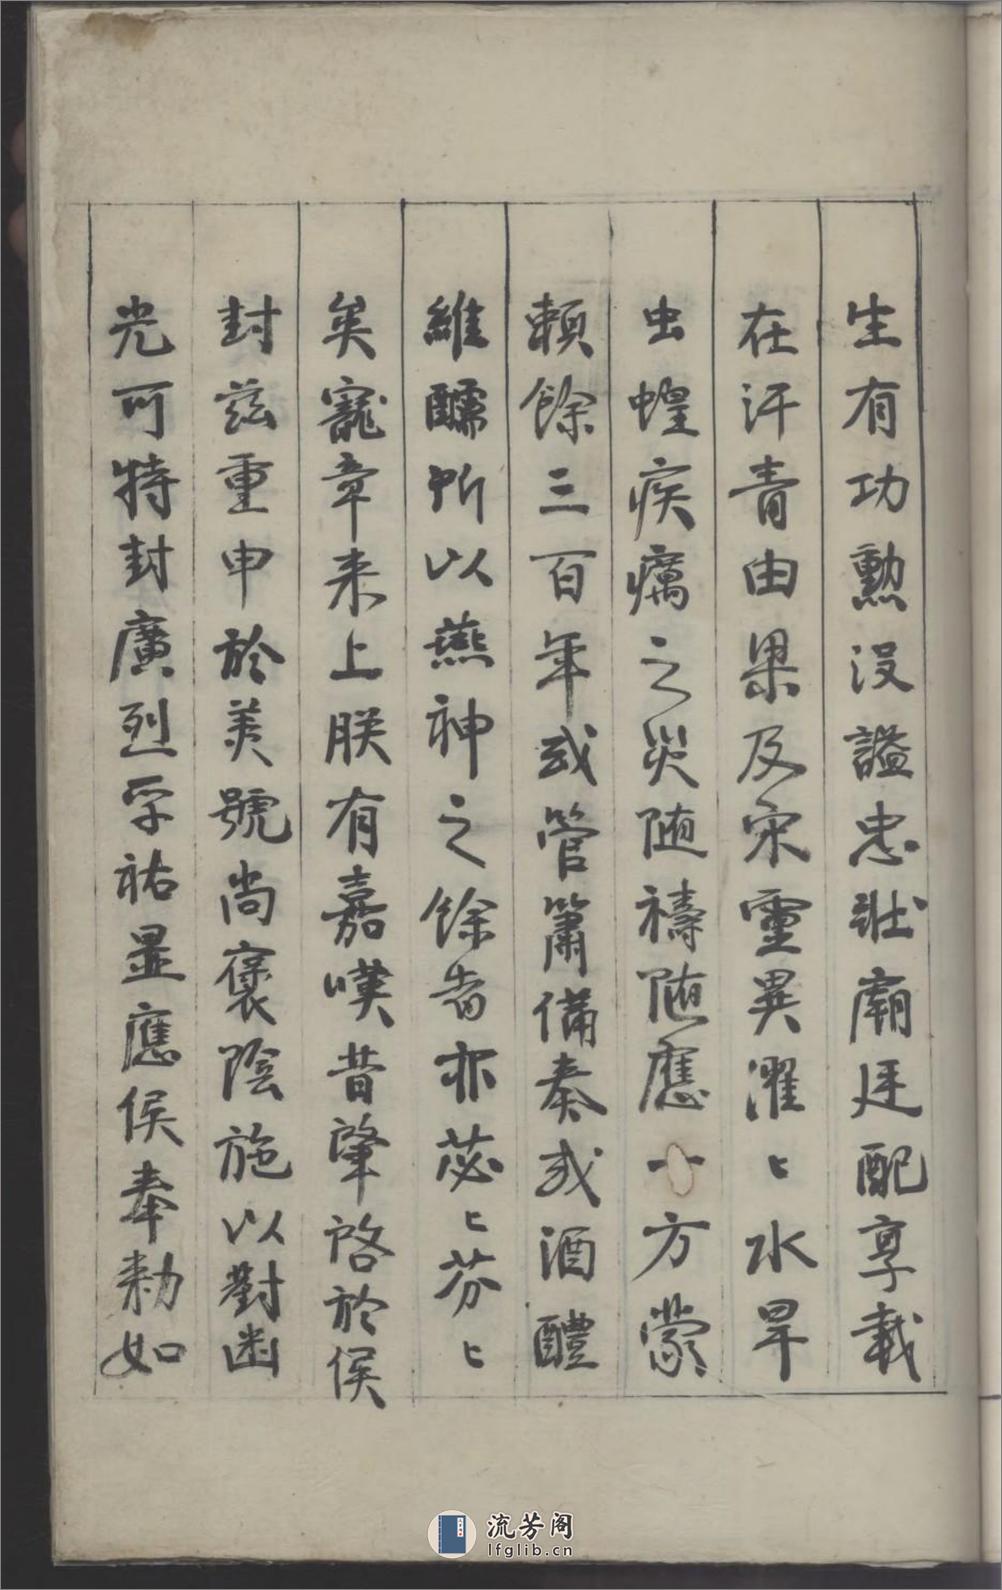 生有功勲没謚忠壯廟廷配享載
在汗青由果及宋靈異濯〻水旱
虫蝗疾癘之災随禱随應一方蒙
賴餘三百年或管簫備奏或酒醴
維醹所以燕神之餘者亦苾〻芬〻
矣寵章来上朕有嘉嘆昔肇啓於侯
封兹重申於美號尚褒陰施以對幽
光可特封廣烈孚祐显應侯奉勅如
流芳阁
lfglib.cn